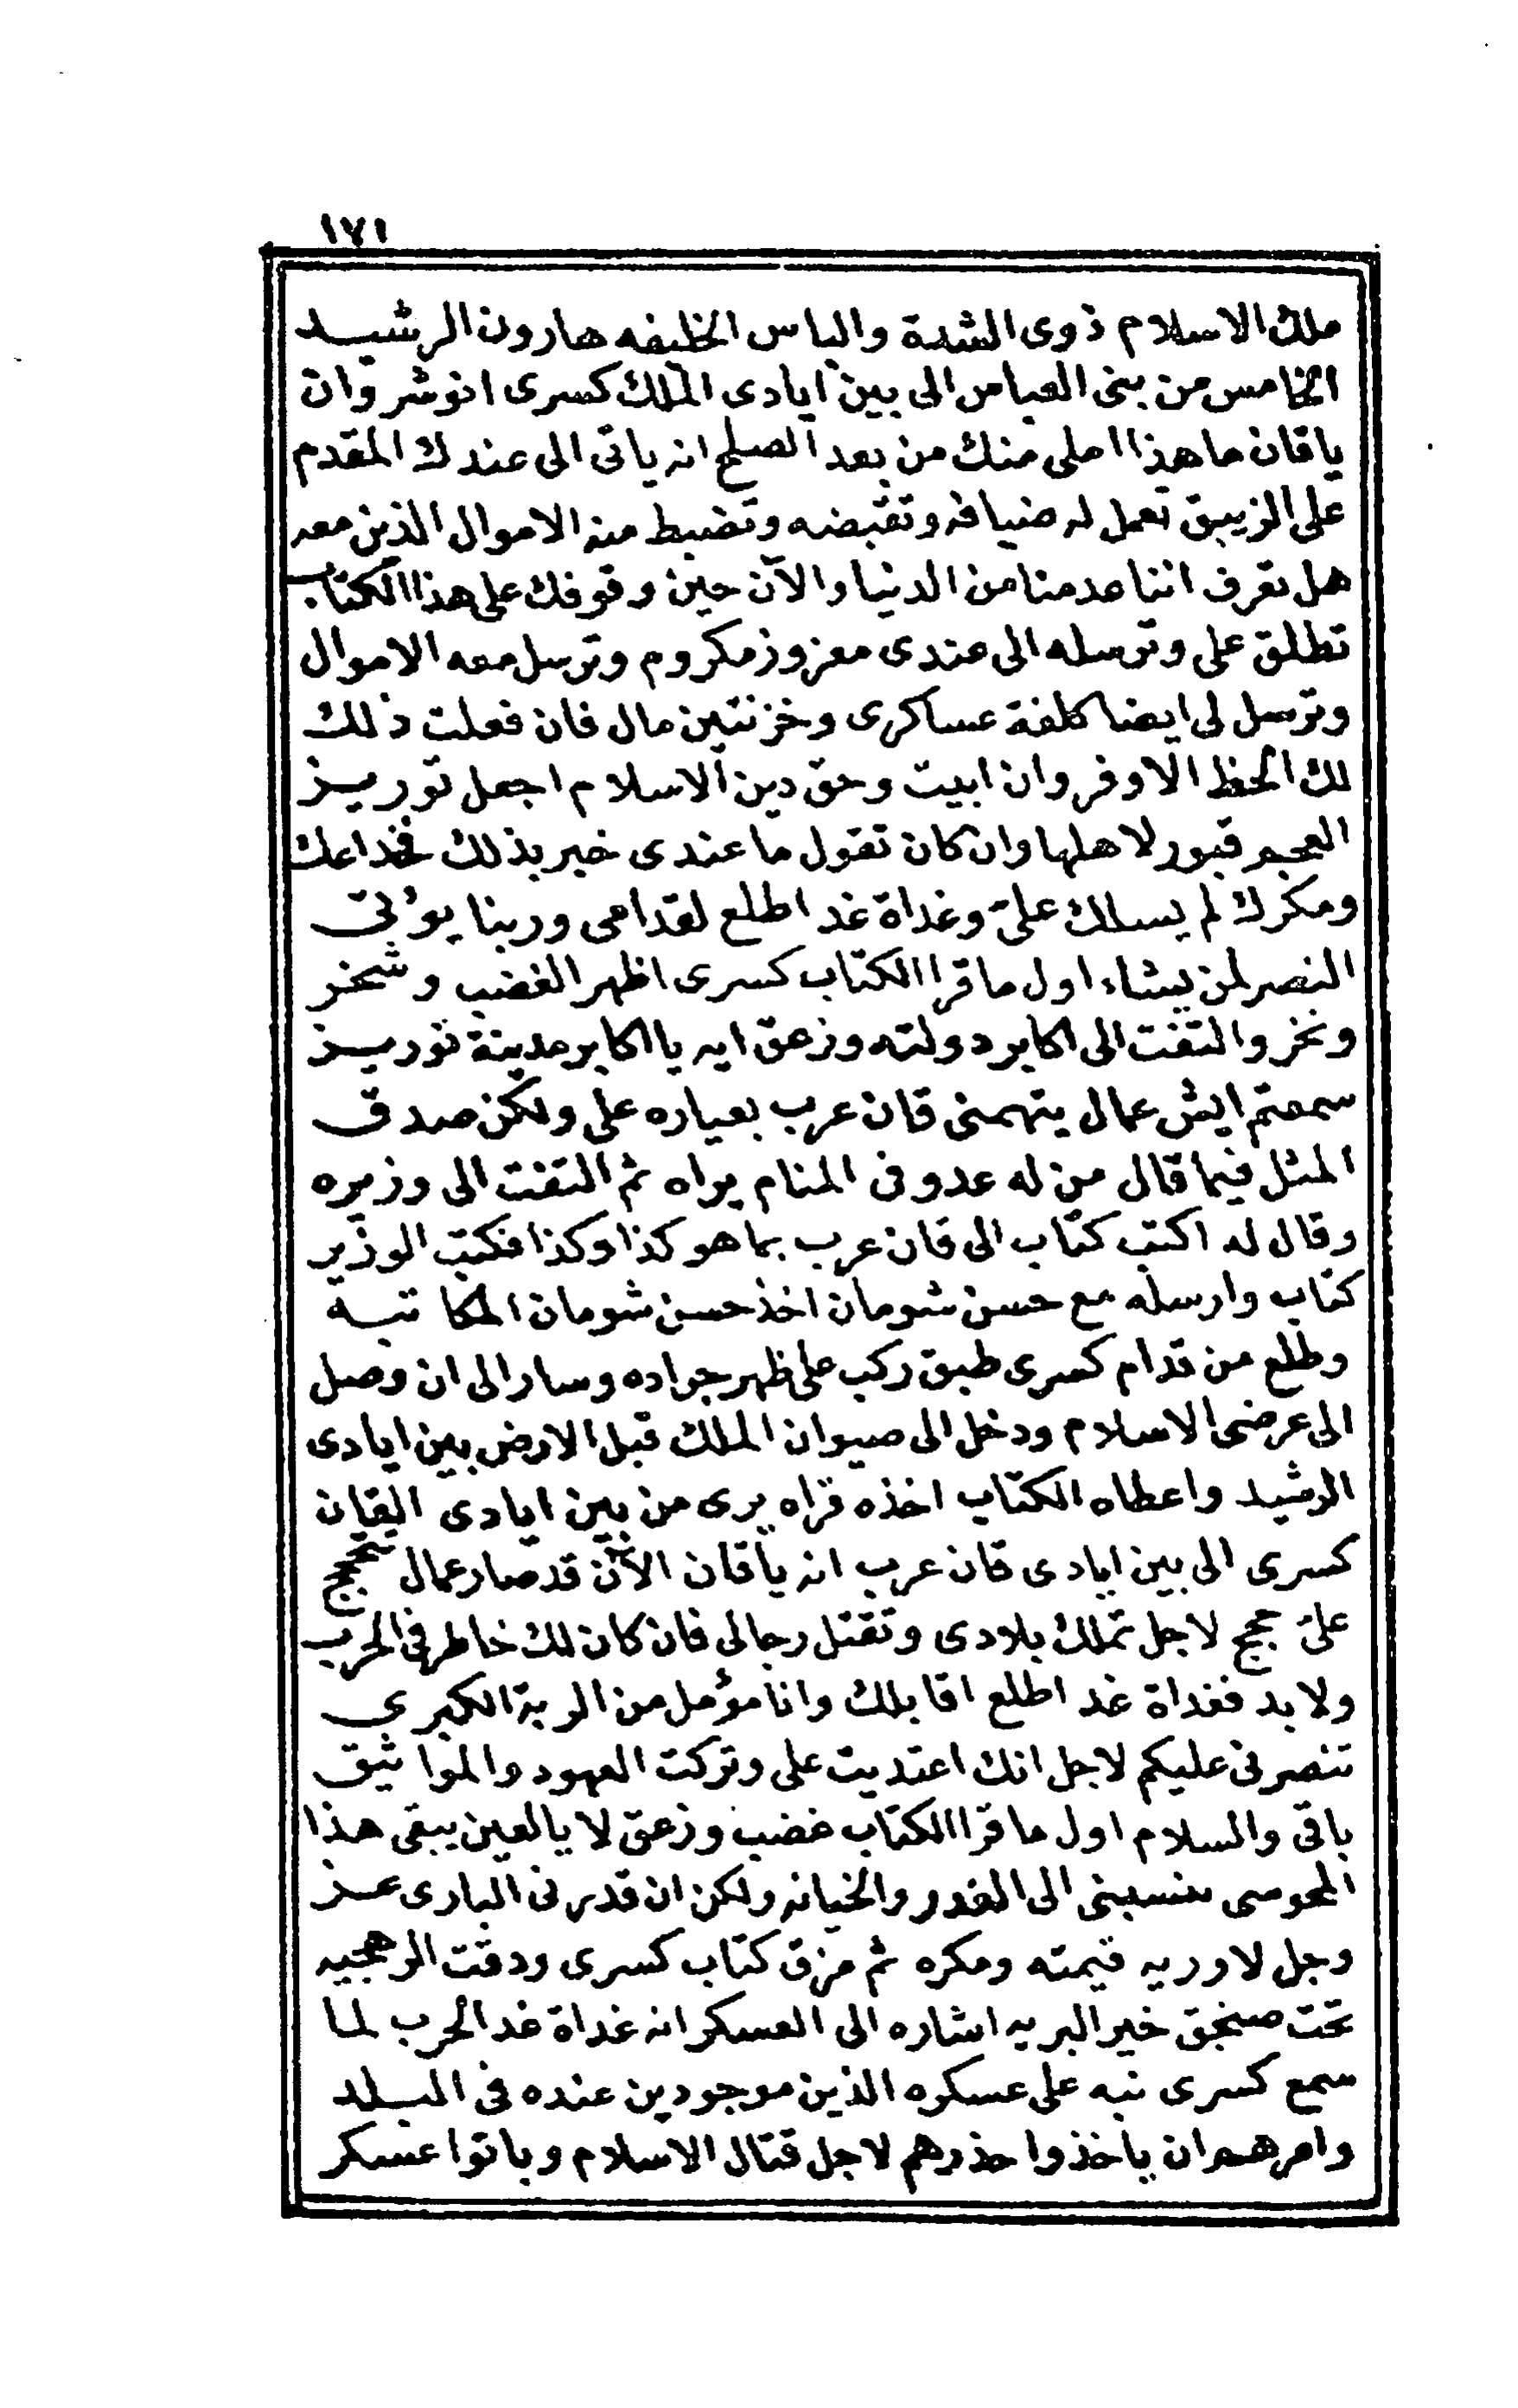 ١٧١
ملك الاسلام ذوى الشدة والباس الخليفه هارون الرشيد
الخامس من بنى العباس الى بين ايادى الملك كسرى انوشروان
ياقان ما هذا املى منك من بعد الصلح انه ياتى الى عندك المقدم
على الزيبق تعمل له ضيافه وتقبضه وتضبط منه الاموال الذين معه
هل تعرف اننا عدمنا من الدنيا والآن حين وقوفك على هذا الكتاب
تطلق على وترسله الى عندى معزوز مكروم وترسل معه الاموال
وترسل لى ايضا كلفة عساكرى وخزنتين مال فان فعلت ذلك
لك الحظ الاوفر وان ابيت وحق دين الاسلام اجعل توريز
العجم قبور لاهلها وان كان تقول ما عندى خبر بذلك فخداعك
ومكرك لم يسلك علىّ وغداة غد اطلع لقدامى وربنا يؤتى
النصر لمن يشاء اول ما قرا الكتاب كسرى اظهر الغضب وشخر
ونخر والتفت الى اكابر دولته وزعق ايه يا اكابر مدينة توريز
سمعتم ايش عمال يتهمنى قان عرب بعياره على ولكن صدق
المثل فيما قال من له عدو فى المنام يراه ثم التفت الى وزيره
وقال له اكتب كتاب الى قان عرب بما هو كذا وكذا فكتب الوزير
كتاب وارسله مع حسن شومان اخذ حسن شومان المكاتبه
وطلع من قدام كسرى طبق ركب على ظهر جواده وسار الى ان وصل
الى عرضى الاسلام ودخل الى صيوان الملك قبل الارض بين ايادى
الرشيد واعطاه الكتاب اخذه قراه يرى من بين ايادى القان
كسرى الى بين ايادى قان عرب انه ياقان الآن قد صار عمال تتحجج
علىّ حجج لاجل تملك بلادى وتقتل رجالى فان كان لك خاطر فى الحرب
ولا بد فغداة غد اطلع اقابلك وانا مؤمل من الربة الكبرى
تنصرنى عليكم لاجل انك اعتديت على وتركت العهود والمواثيق
باقى والسلام اول ما قرا الكتاب غضب وزعق لا يالعين يبقى هذا
المجوسى ينسبنى الى الغدر والخيانه ولكن ان قدرنى البارى عز
وجل لاوريه قيمته ومكره ثم مزق كتاب كسرى ودقت الرهجيه
تحت صنجق خير البريه اشاره الى العسكر انه غداة غد الحرب لما
سمع كسرى نبه على عسكره الذين موجودين عنده فى البلد
وامرهم ان ياخذوا حذرهم لاجل قتال الاسلام وباتوا عسكر